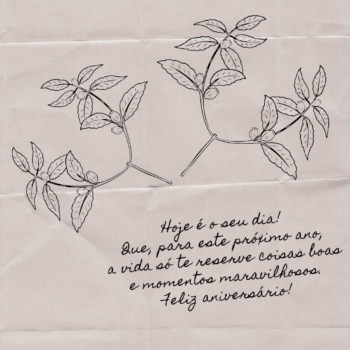 Hoje é o seu dia!
Que, para este próximo ano,
a vida só te reserve coisas boas
e momentos maravilhosos.
Feliz aniversário!